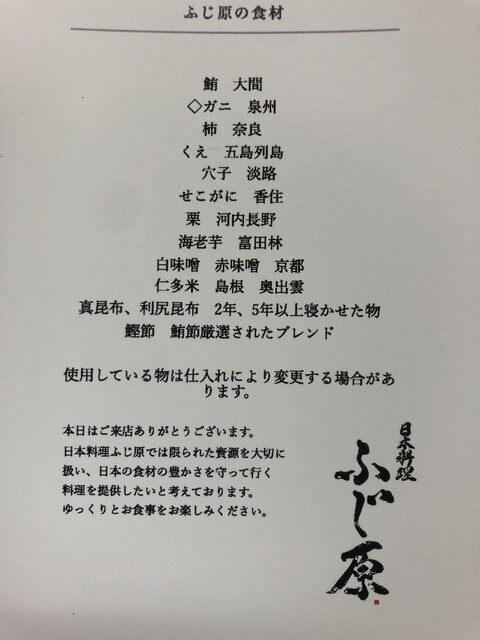 ふじ原の食材
鮪　大間
◇ガニ　泉州
柿　奈良
くえ　五島列島
穴子　淡路
せこがに　香住
栗　河内長野
海老芋　富田林
白味噌　赤味噌　京都
仁多米　島根　奥出雲
真昆布、利尻昆布　2年、5年以上寝かせた物
鰹節　鮪節厳選されたブレンド
使用している物は仕入れにより変更する場合があ
ります。
本日はご来店ありがとうございます。
日本料理ふじ原では限られた資源を大切に
扱い、日本の食材の豊かさを守って行く
料理を提供したいと考えております。
ゆっくりとお食事をお楽しみください。
日本料理
ふじ原